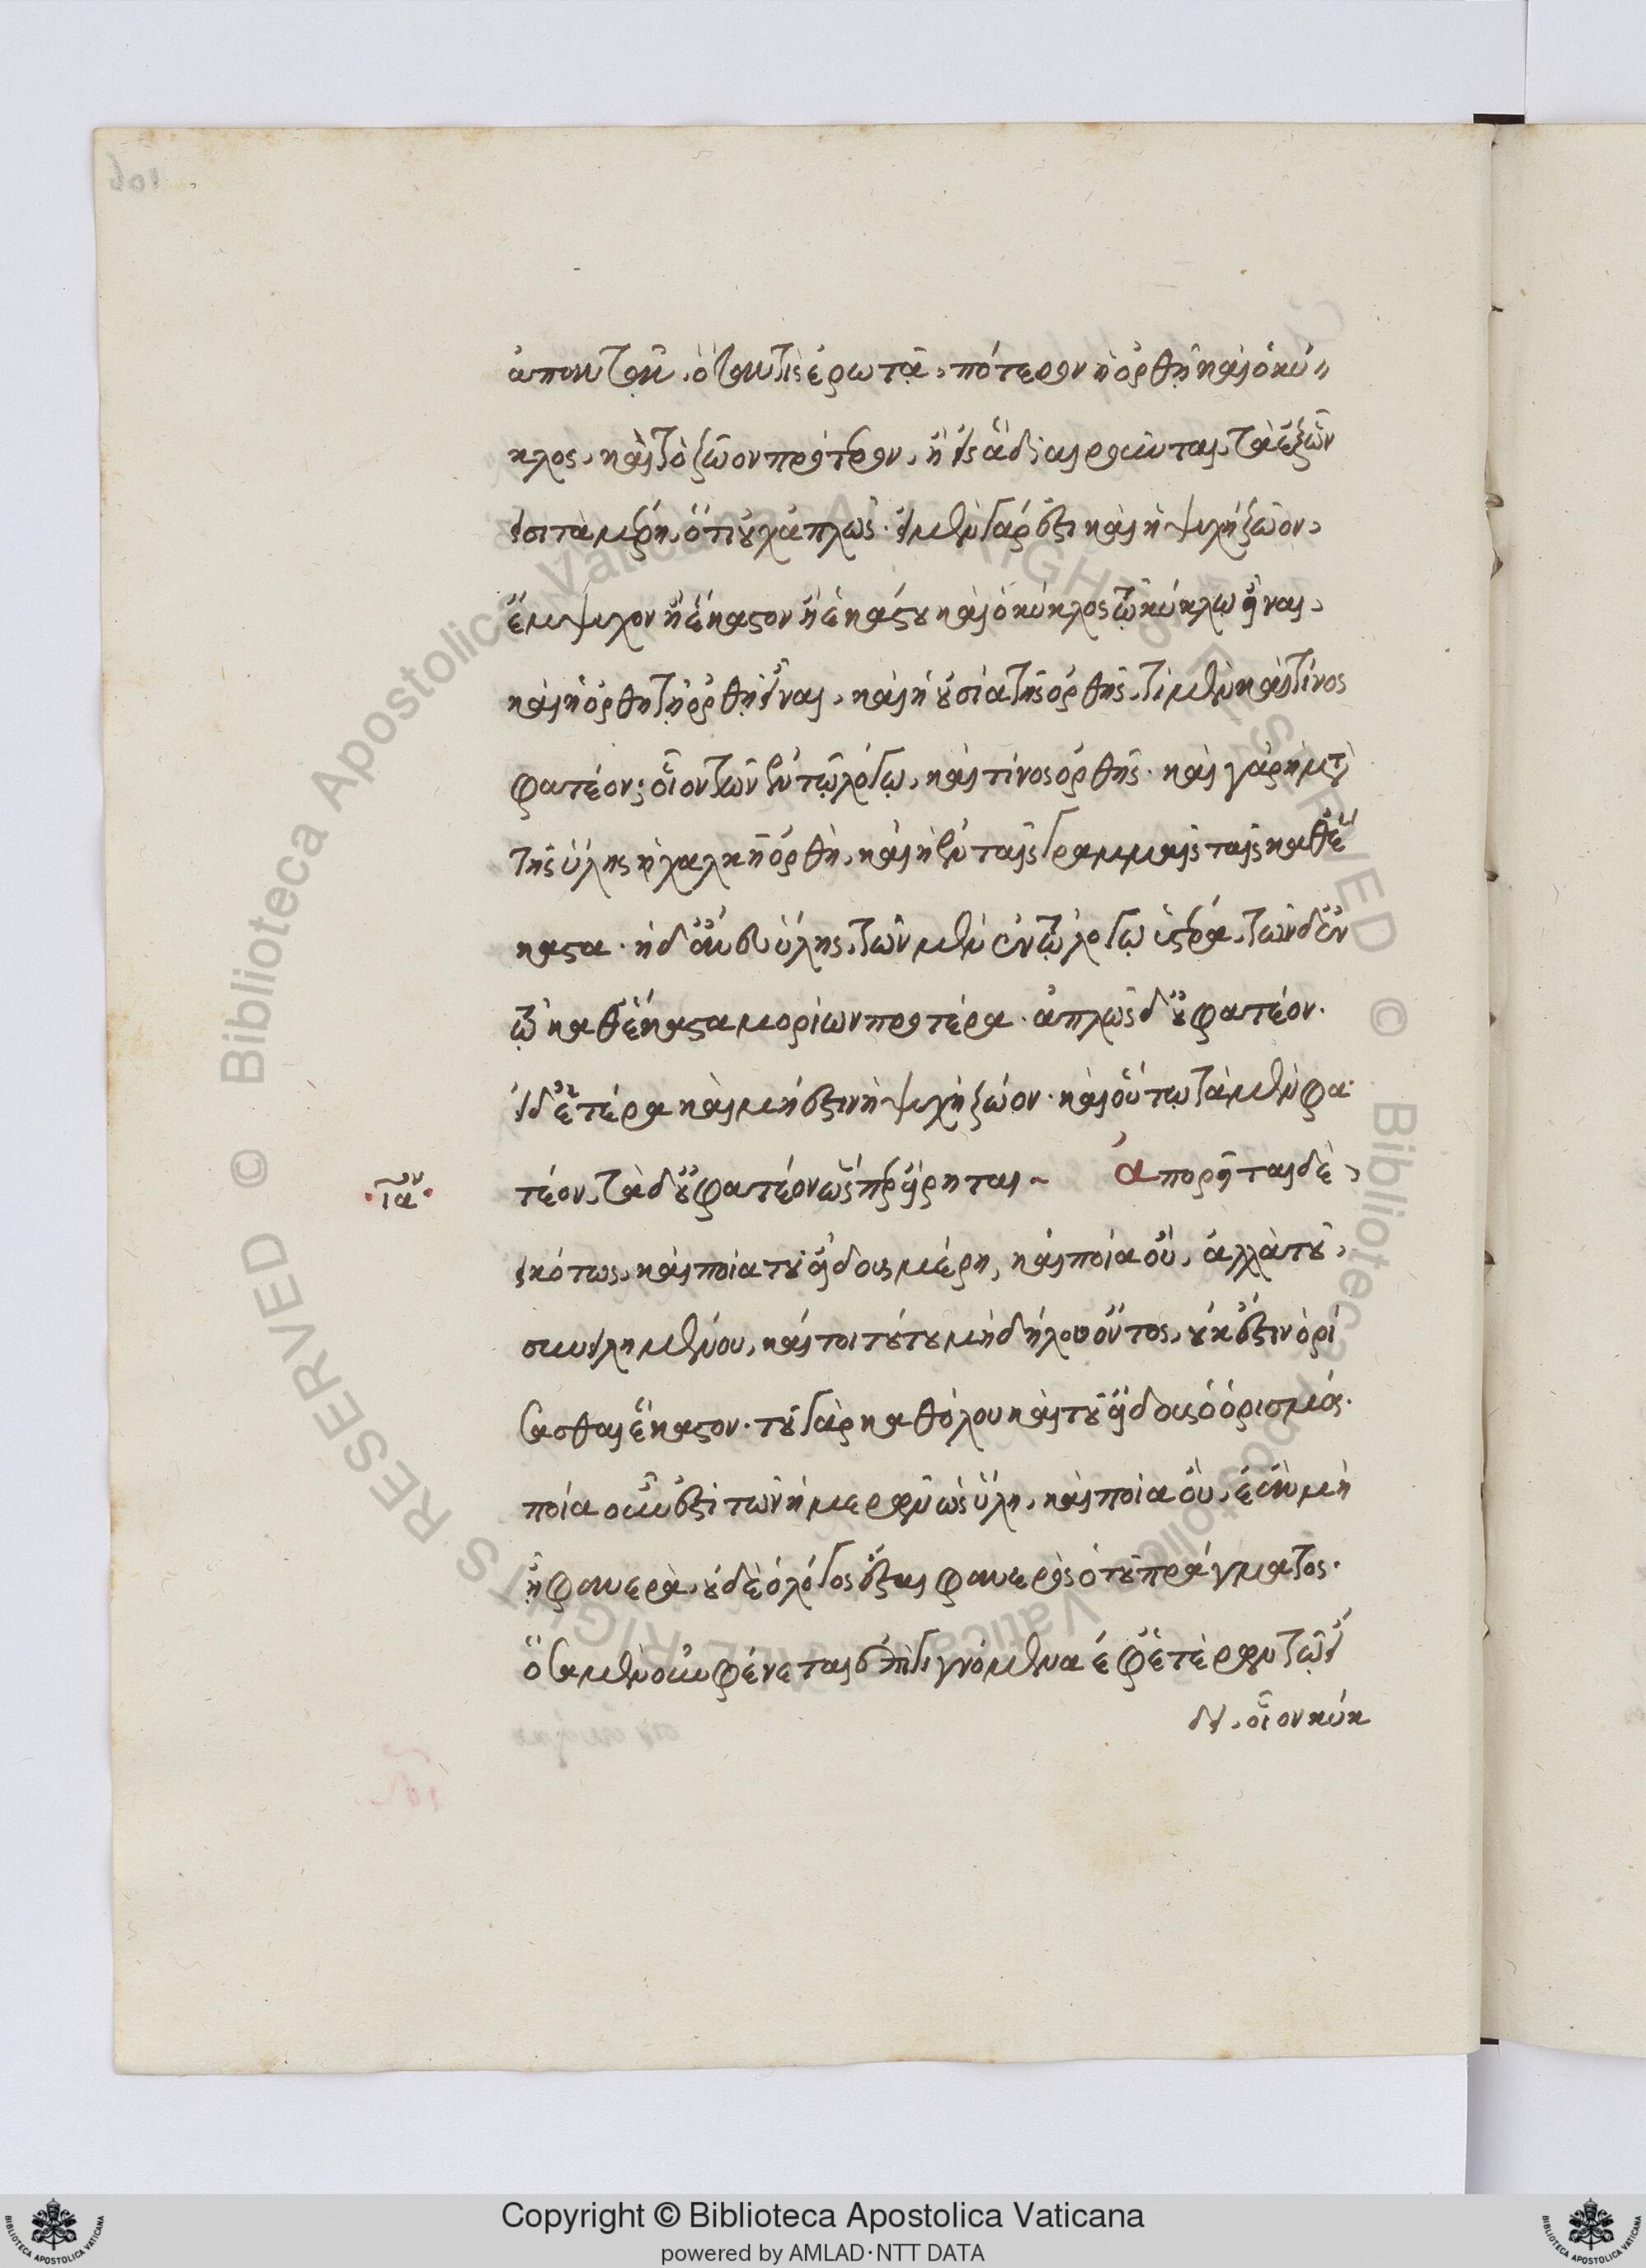 ἀπαντᾶν, ὅταν τὶς ἐρωτᾷ, πότερον ἡ ὀρθὴ καὶ ὁ κύ
κλος, καὶ τὸ ζῶον πρότερον, ἢ εἰς ἃ διαιροῦνται, τὰ ἐξ ὧν
εἰσὶ τὰ μέρη, ὅτι οὐχ ἁπλῶς. εἰ μὲν γάρ ἐστι καὶ ἡ ψυχὴ ζῶον,
ἔμψυχον ἢ ἕκαστον ἡ ἑκάστου καὶ ὁ κύκλος τῷ κύκλῳ εἶναι,
καὶ ἡ ὀρθὴ τῇ ὀρθῇ εἶναι, καὶ ἡ οὐσία τῆς ὀρθῆς, τὶ μὲν καὶ τίνος
φατέον; οἷον τῶν ἐν τῷ λόγῳ, καὶ τίνος ὀρθῆς. καὶ γὰρ ἡ μετὰ
τῆς ὕλης ἡ χαλκῆ ὀρθὴ, καὶ ἡ ἐν ταῖς γραμμαῖς ταῖς καθέ
καστα. ἡ δ' ἄνευ ὕλης, τῶν μὲν ἐν τῷ λόγῳ ὑστέρα, τῶν δ' ἐν
τῷ καθέκαστα μορίων προτέρα. ἁπλῶς δ' οὐ φατέον.
εἰ δ' ἑτέρα καὶ μή ἐστιν ἡ ψυχὴ ζῶον. καὶ οὕτω τὰ μὲν φα
τέον, τὰ δ' οὐ φατέον ὥσπερ εἴρηται ~ Ἀπορεῖται δὲ,
ια ον
εἰκότως, καὶ ποῖα τοῦ εἴδους μέρη, καὶ ποῖα οὔ, ἀλλὰ τοῦ,
συνειλημμένου, καίτοι τούτου μὴ δήλου ὄντος, οὐκ ἔστιν ὁρί
σασθαι ἕκαστον. τοῦ γὰρ καθόλου καὶ τοῦ εἴδους ὁ ὁρισμός.
ποῖα οὖν ἐστὶ τῶν ἡμερῶν ὡς ὕλη, καὶ ποῖα οὔ, ἐὰν μὴ
ᾖ φανερὰ, οὐδὲ ὁ λόγος ἔσται φανερὸς ὁ τοῦ πράγματος.
ὅσα μὲν οὖν φένεται ἐπιγινόμενα ἐφ' ἑτέρων τῷ εἴ
δει, οἷον κύκ